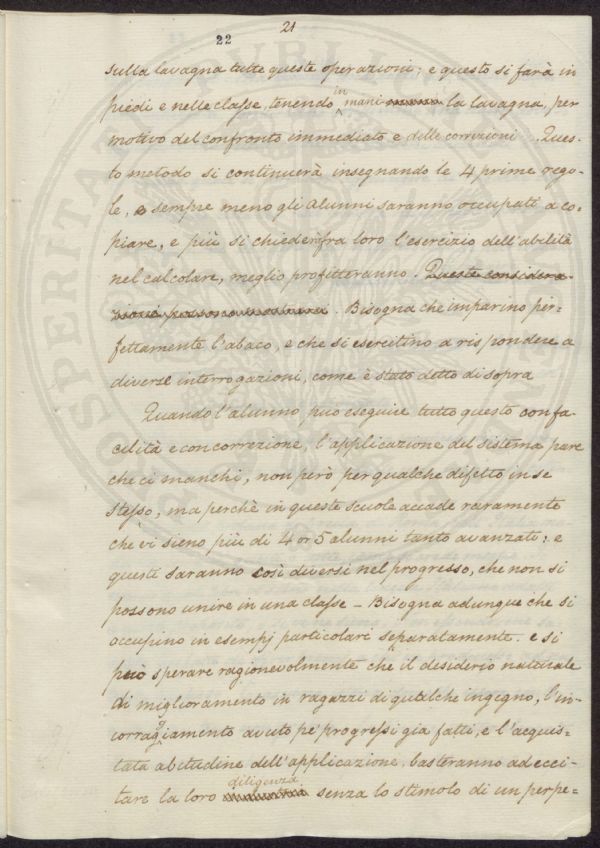 21
22
sulla lavagna tutte queste operazioni; e questo si farà in
piedi e nelle classe, tenendo in mani la lavagna, per
motivo del confronto immediato e delle correzioni. Ques-
to metodo si continuerà insegnando le 4 prime rego-
le, e sempre meno gli alunni saranno occupati a co-
piare, e più si chiederà fra loro l'esercizio dell'abilità
nel calcolare, meglio profitteranno. Queste considera-
zioni possono mostrarci. Bisogna che imparino per=
fettamente l'abaco, e che si esercitino a rispondere a
diverse interrogazioni, come è stato detto di sopra
Quando l'alunno può eseguire tutto questo con fa-
cilità e con correzione, l'applicazione del sistema pare
che ci manchi, non però per qualche difetto in se
stesso, ma perchè in queste scuole accade raramente
che vi sieno più di 4 or 5 alunni tanto avanzati: e
questi saranno così diversi nel progresso, che non si
possono unire in una classe - Bisogna adunque che si
occupino in esempj particolari separatamente. e si
può sperare ragionevolmente che il desiderio naturale
di miglioramento in ragazzi di qualche ingegno, l'in-
corraggiamento avuto pe' progressi già fatti, e l'acquis-
tata abitudine dell'applicazione, basteranno ad ecci-
tare la loro diligenza senza lo stimolo di un perpe=